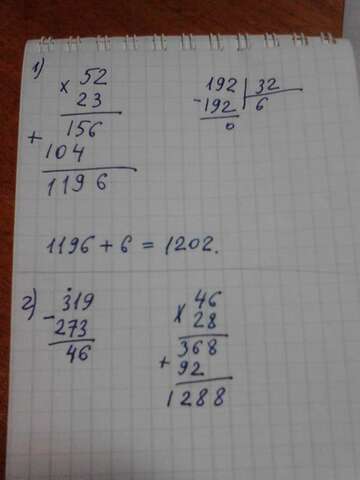 1)
× 52
23
156
+ 104
1196
192 | 32
-192 | 6
0
1196 + 6 = 1202.
2)
- 319
273
46
× 46
28
368
+ 92
1288